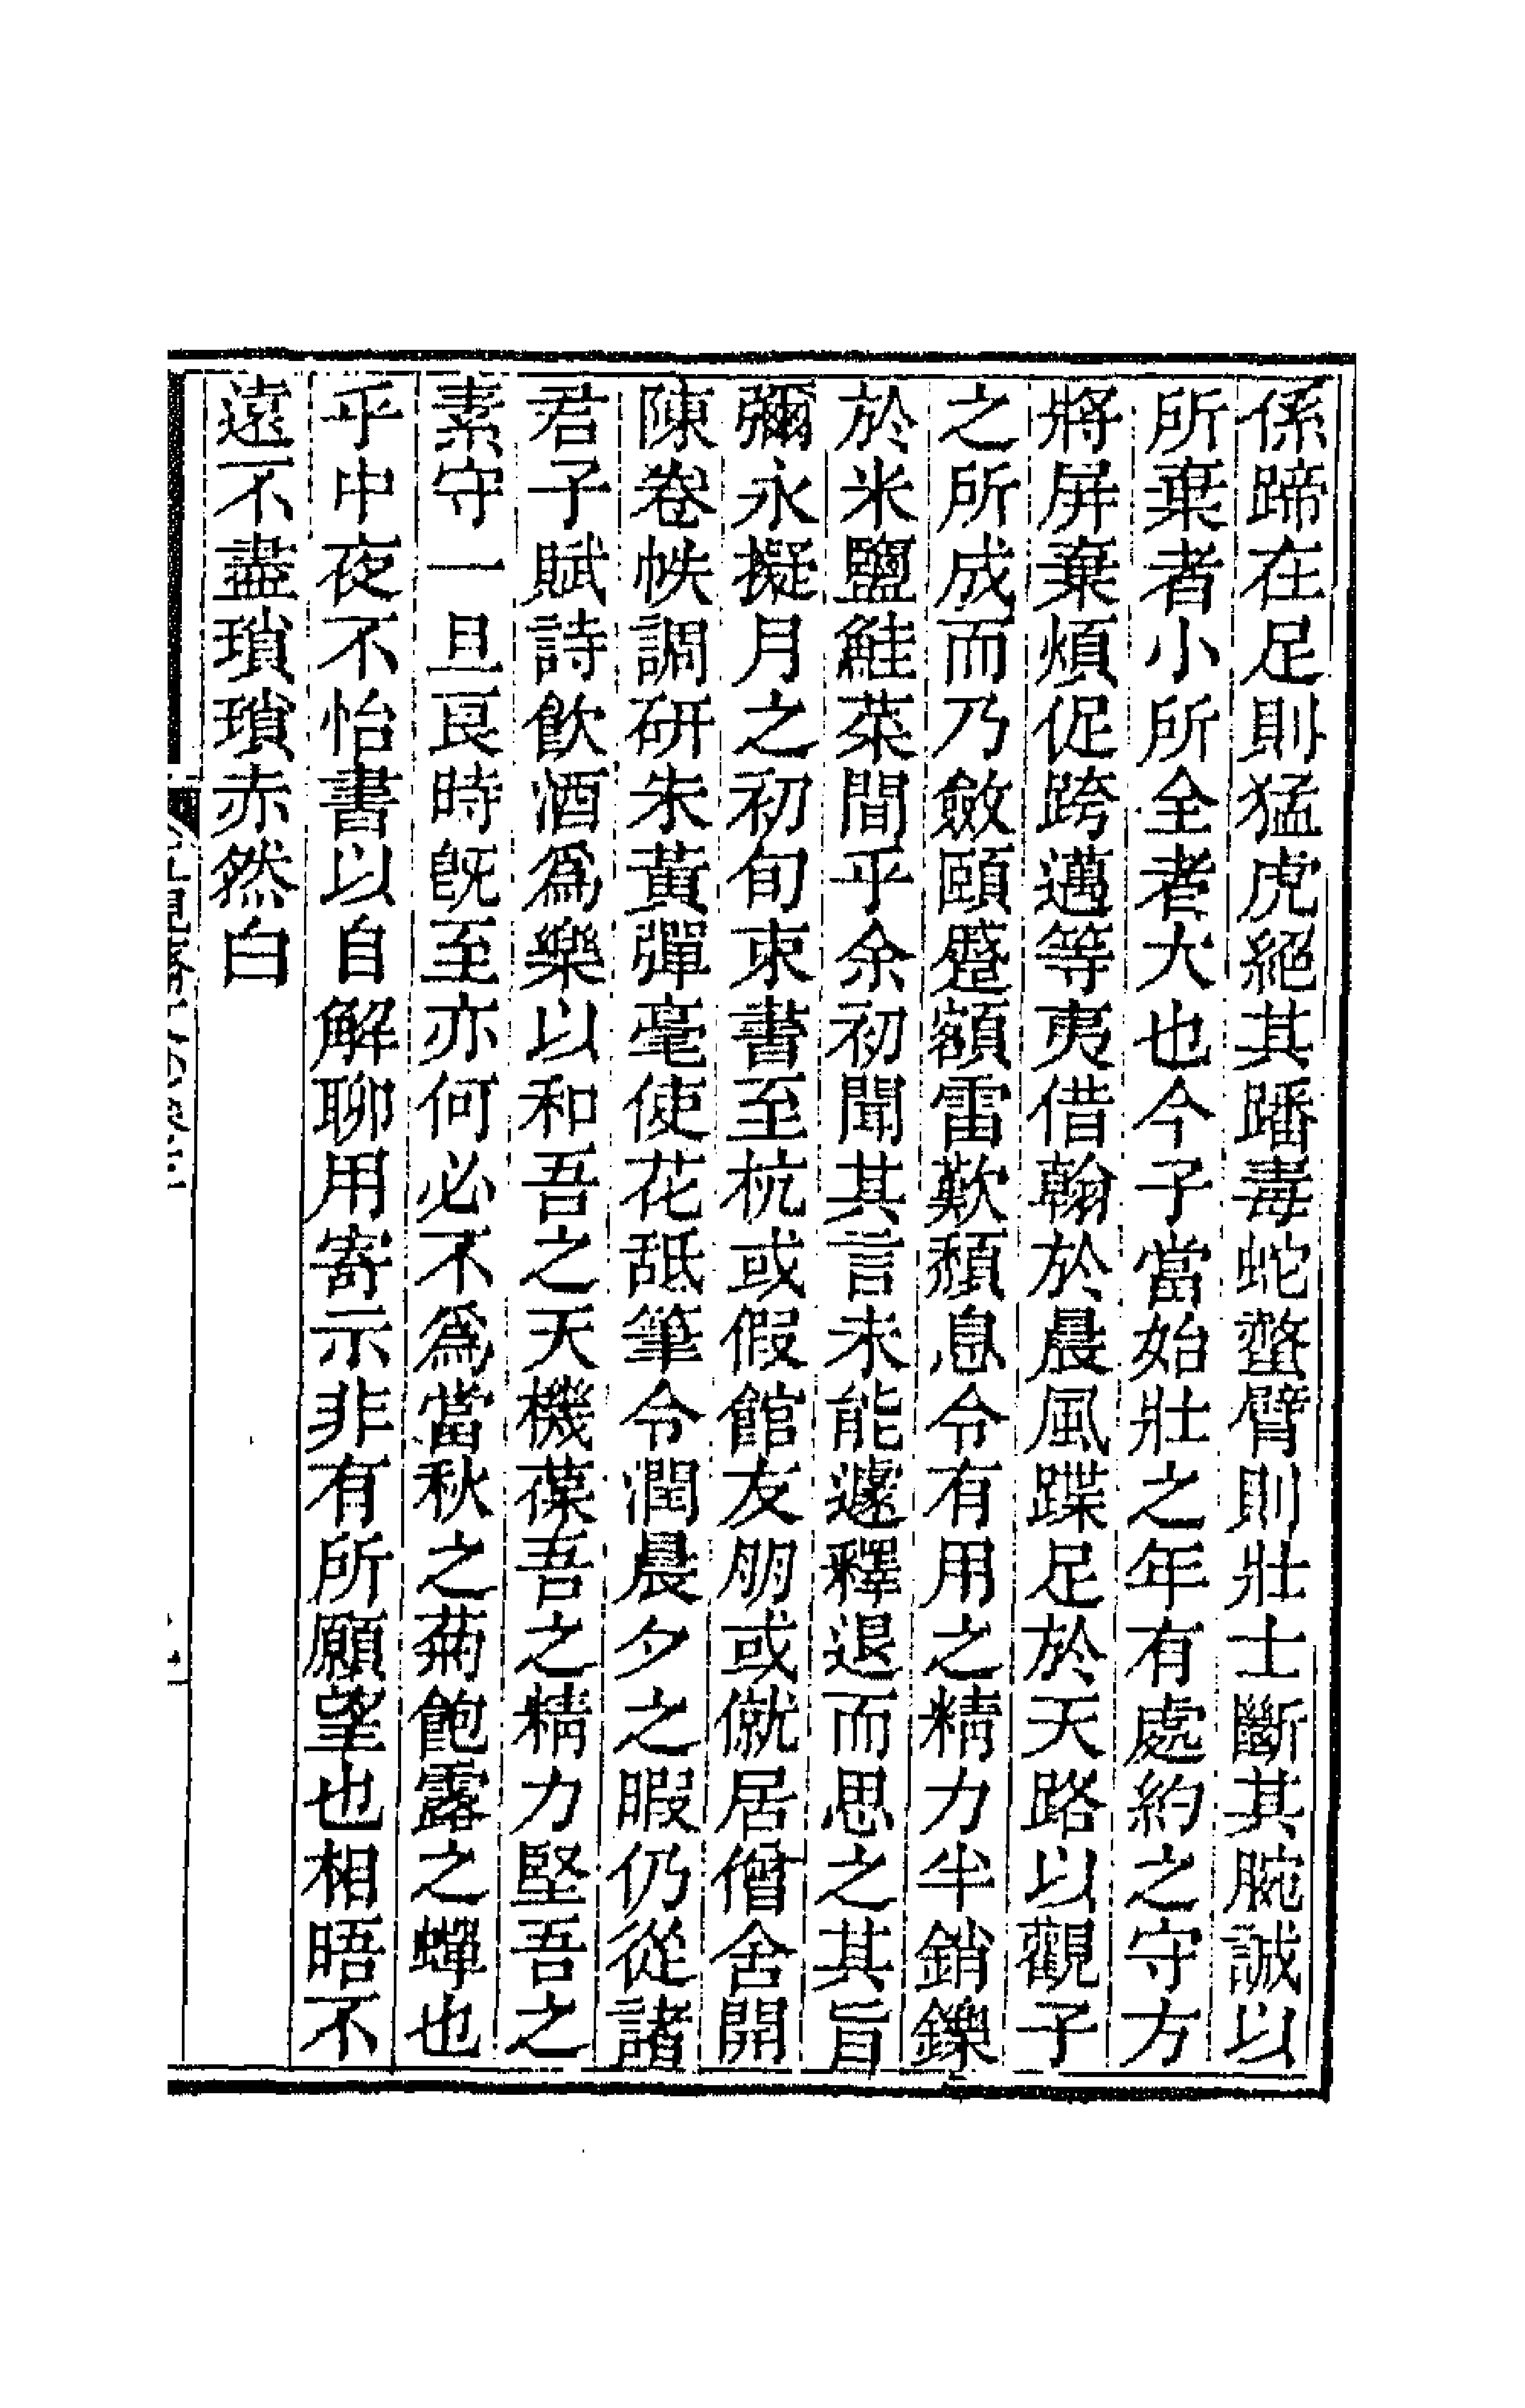 係蹄在足則猛虎絕其蹯毒蛇螫臂則壯士斷其腕誠以
所棄者小所全者大也今子當始壯之年有處約之守方
將屏棄煩促跨邁等夷借翰於晨風蹀足於天路以觀子
之所成而乃斂頤蹙額雷歎頹息令有用之精力半銷鑠
於米鹽鮭菜間乎余初聞其言未能遽釋退而思之其旨
彌永擬月之初旬束書至杭或假館友朋或僦居僧舍開
陳卷帙調硏朱黃彈毫使花舐筆令潤晨夕之暇仍從諸
君子賦詩飲酒爲樂以和吾之天機葆吾之精力堅吾之
素守一旦良時既至亦何必不爲當秋之菊飽露之蟬也
乎中夜不怡書以自解聊用寄示非有所願望也相晤不
遠不盡瑣瑣赤然白